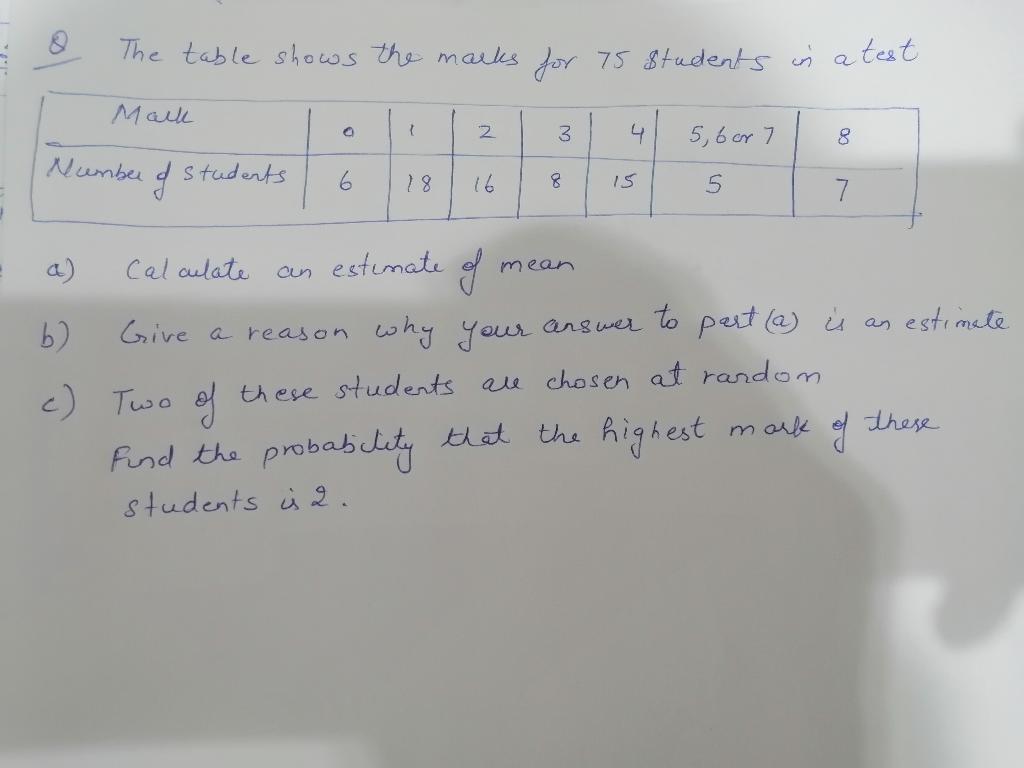 Q The table shows the marks for 75 students in a test
Mark 0 1 2 3 4 5,6 or 7 8
Number of students 6 18 16 8 15 5 7
a) Calculate an estimate of mean
b) Give a reason why your answer to part (a) is an estimate
c) Two of these students are chosen at random
Find the probability that the highest mark of these
students is 2.